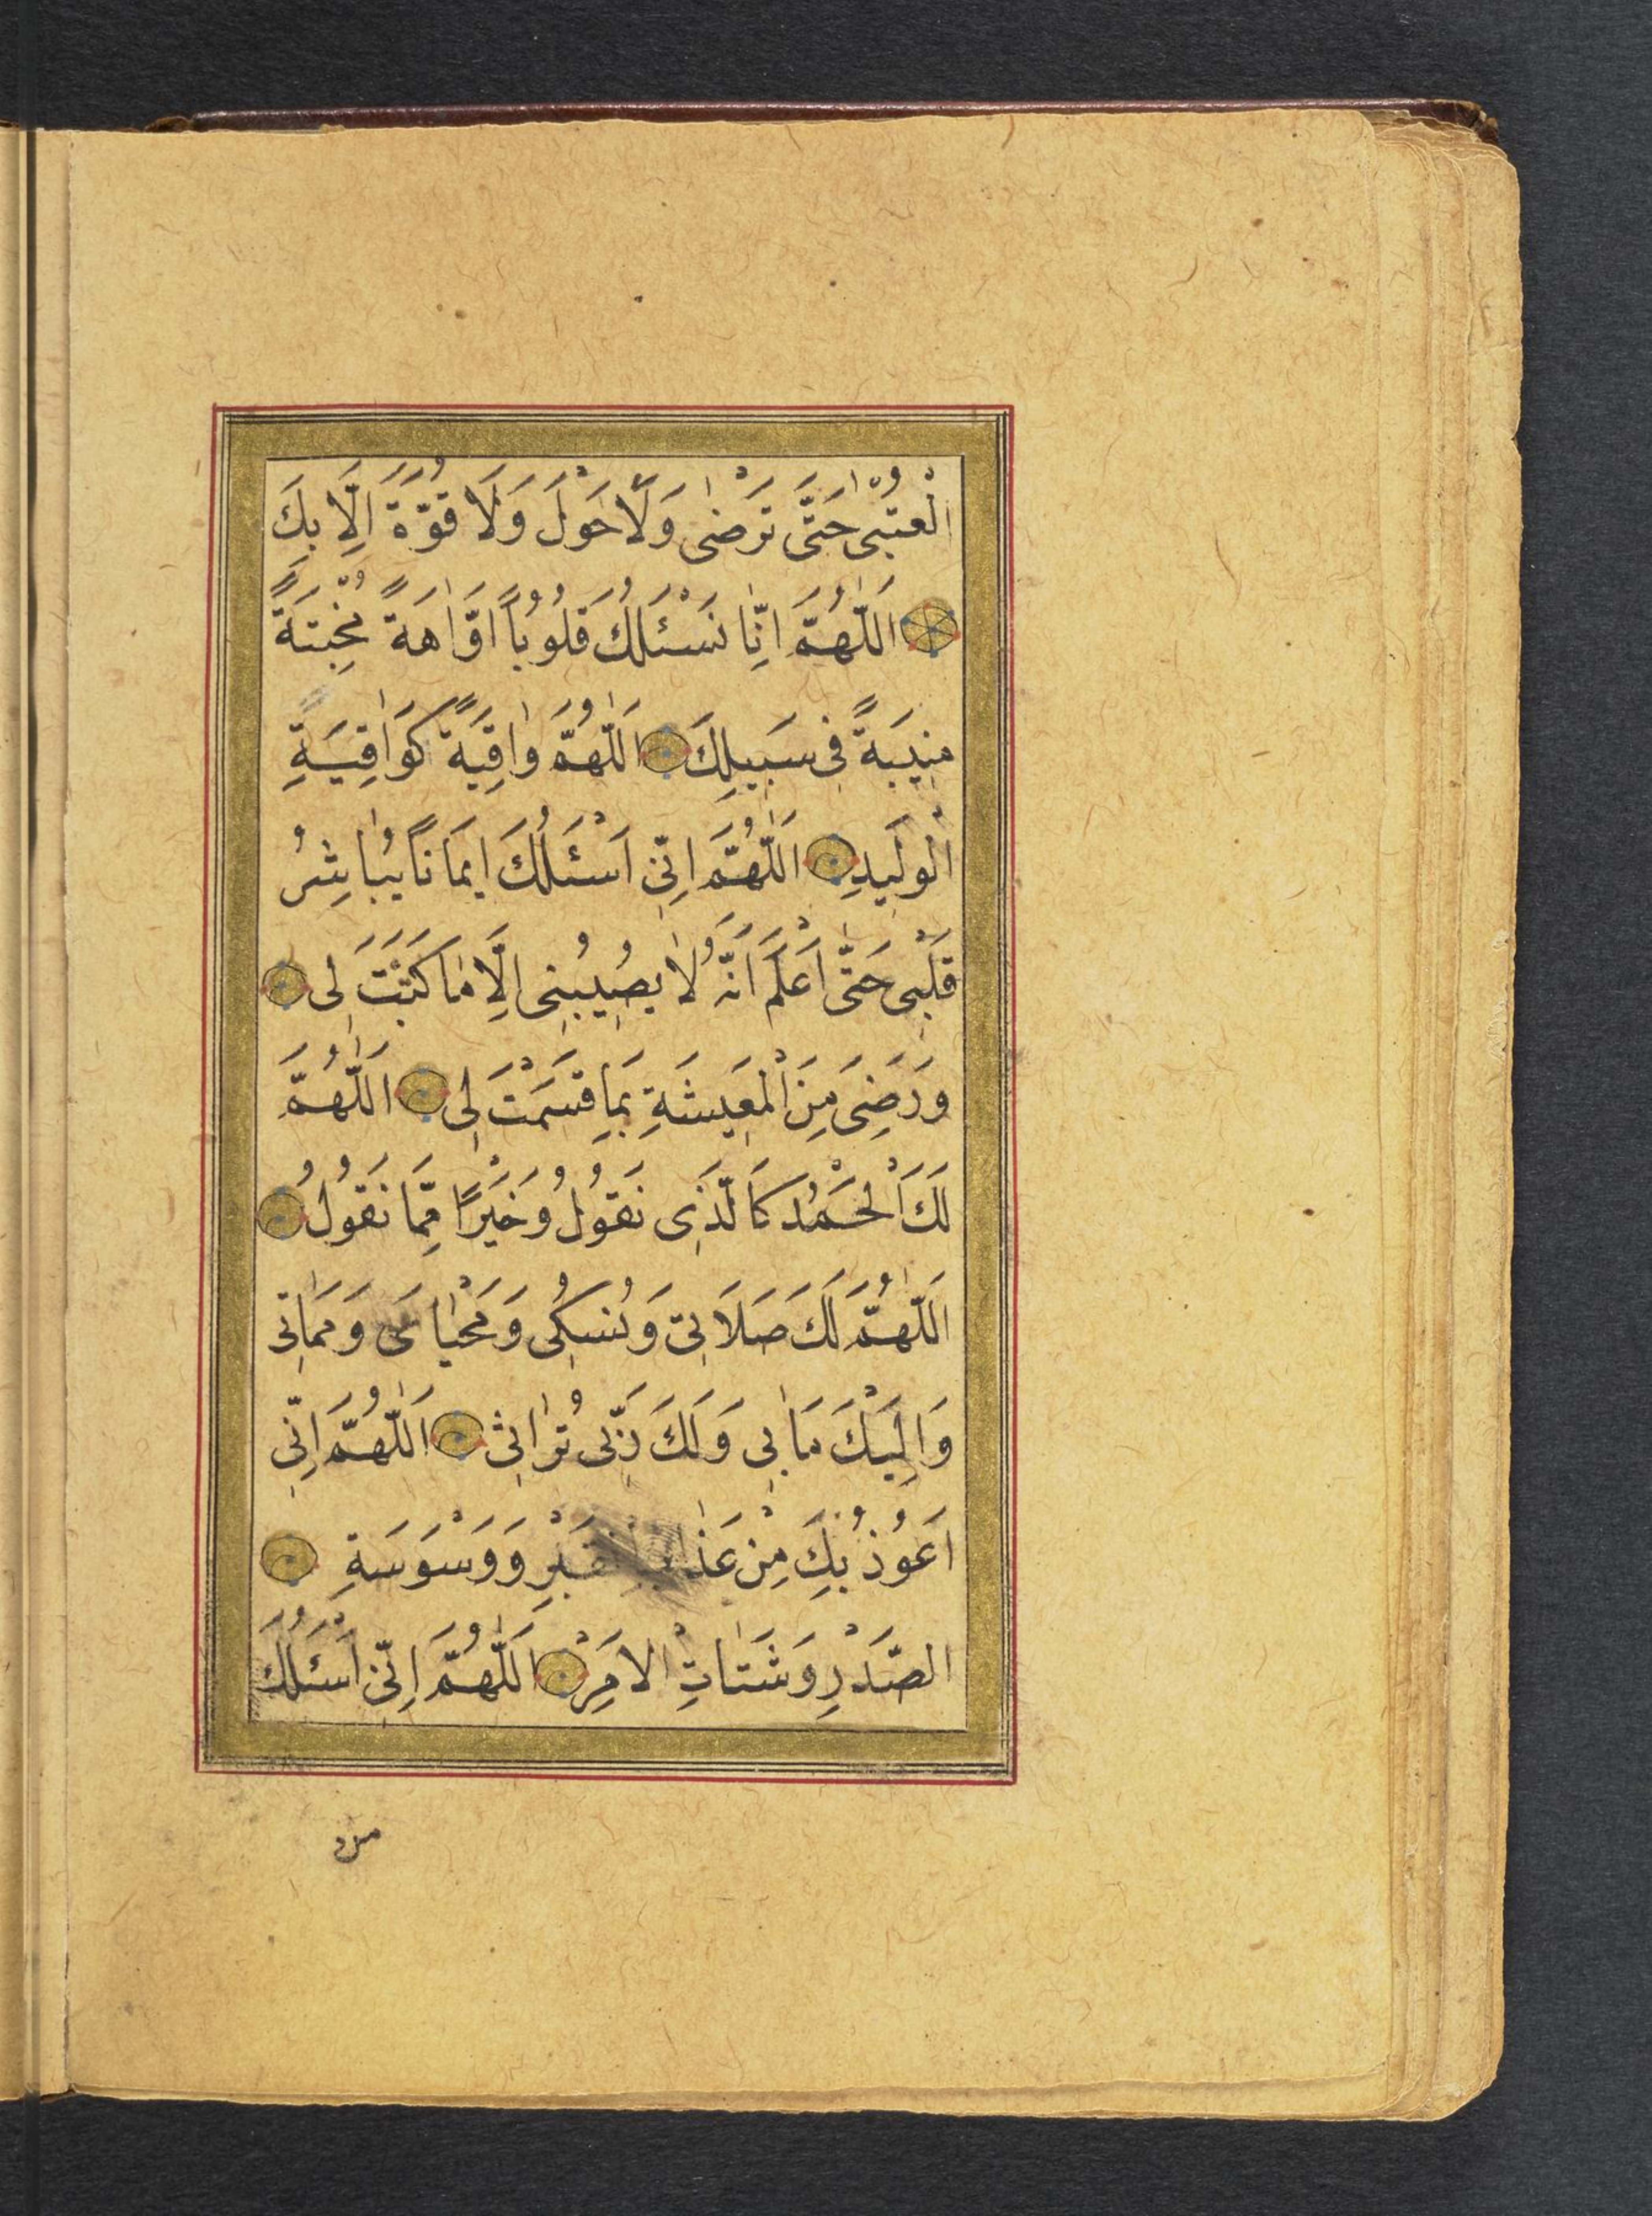 الْعُتْبٰى حَتَّى تَرْضٰى وَلَا حَوْلَ وَلَا قُوَّةَ اِلَّا بِكَ
اَللّٰهُمَّ اِنَّا نَسْئَلُكَ قُلُوبًا اَوَّاهَةً مُخْبِتَةً
مُنِيبَةً فِى سَبِيلِكَ اَللّٰهُمَّ وَاقِيَةً كَوَاقِيَةِ
الْوَلِيدِ اَللّٰهُمَّ اِنِّى اَسْئَلُكَ اِيمَانًا يُبَاشِرُ
قَلْبِى حَتّٰى اَعْلَمَ اَنَّهُ لَا يُصِيبُنِى اِلَّا مَا كَتَبْتَ لِى
وَرَضِىَ مِنَ الْمَعِيشَةِ بِمَا قَسَمْتَ لِى اَللّٰهُمَّ
لَكَ الْحَمْدُ كَالَّذِى نَقُولُ وَخَيْرًا مِمَّا نَقُولُ
اَللّٰهُمَّ لَكَ صَلَاتِى وَنُسُكِى وَمَحْيَاىَ وَمَمَاتِى
وَاِلَيْكَ مَاٰبِى وَلَكَ رَبِّى تُرَاثِى اَللّٰهُمَّ اِنِّى
اَعُوذُ بِكَ مِنْ عَذَابِ الْقَبْرِ وَوَسْوَسَةِ
الصَّدْرِ وَشَتَاتِ الْاَمْرِ اَللّٰهُمَّ اِنِّى اَسْئَلُكَ